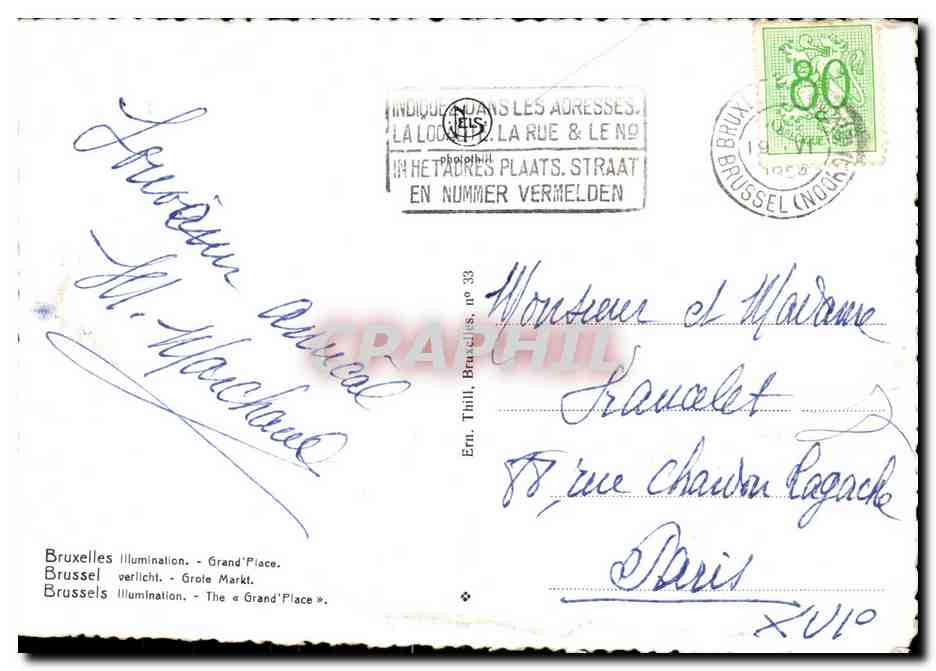 80
INDIQUEZ DANS LES ADRESSES.
LA LOCALITE. LA RUE & LE No
IN HET ADRES PLAATS. STRAAT
EN NUMMER VERMELDEN
NELS
photothill
BRUX
19 VI
BRUSSEL (NOORD)
Souvenir
amical
M. Marchand
Monsieur et Madame
88, rue Chardon Lagache
Paris
XVIe
CPAPHIL
Ern. Thill, Bruxelles, nº 33
Bruxelles Illumination. - Grand'Place.
Brussel verlicht. - Grote Markt.
Brussels Illumination. - The « Grand'Place ».